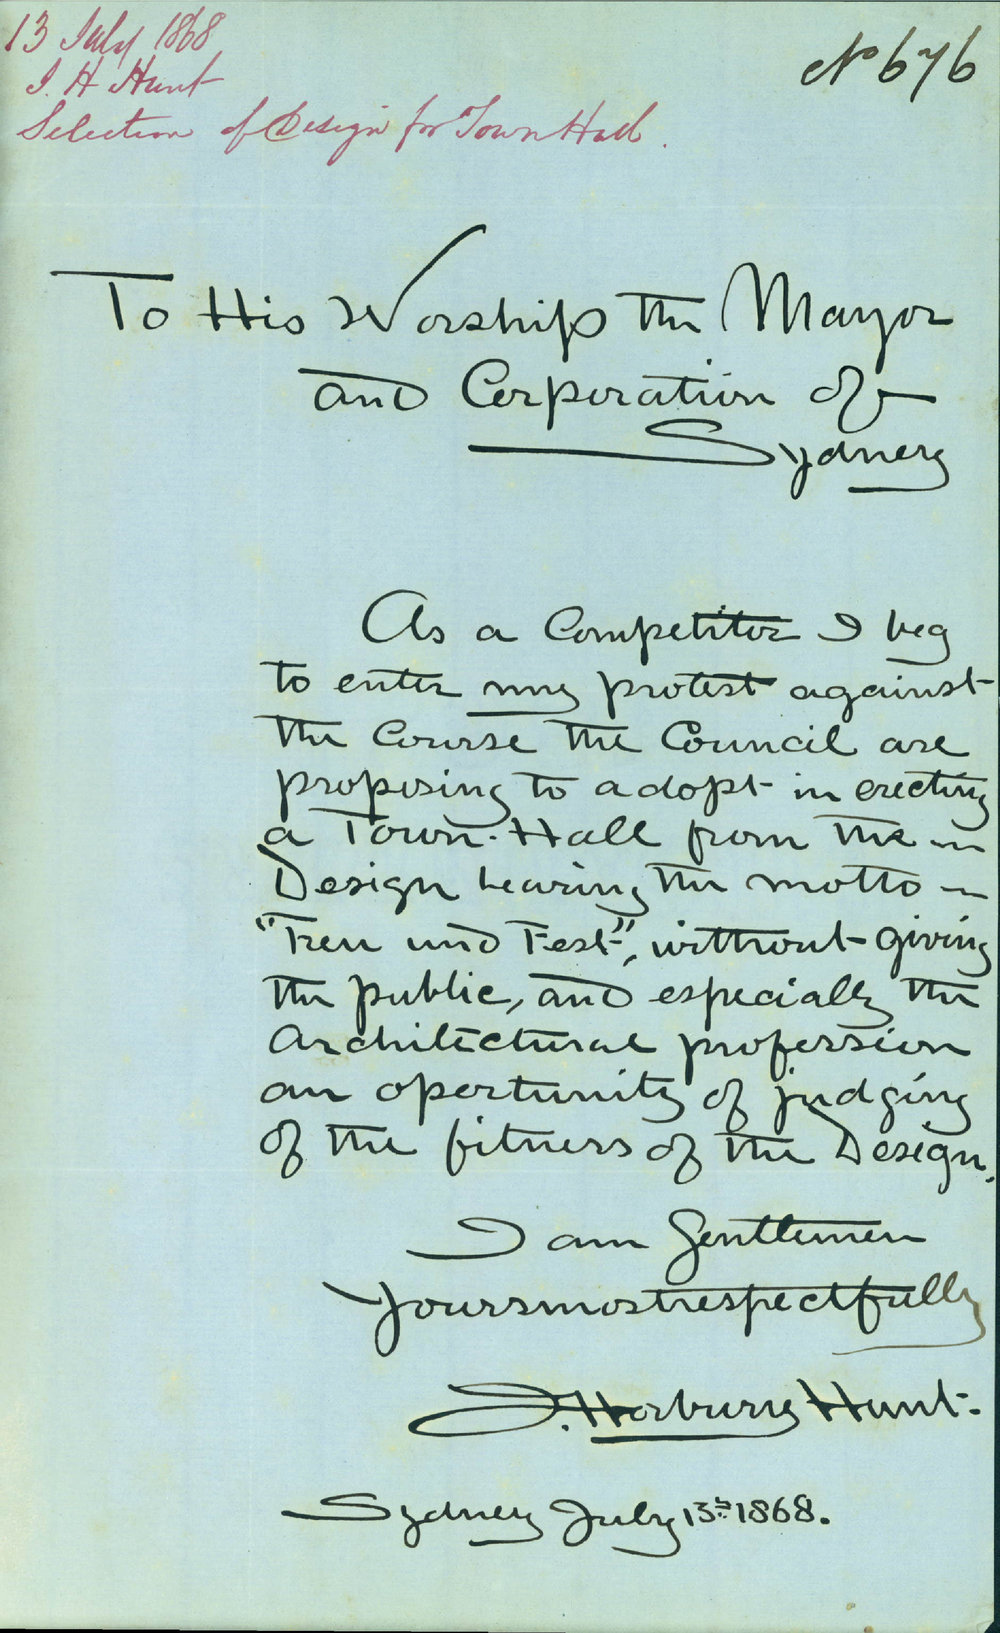 13 July 1868
J. H Hunt
Selection of Design for Town Hall.
No 676
To His Worship the Mayor
and Corporation of
Sydney
As a Competitor I beg
to enter my protest against
the Course the Council are
proposing to adopt in erecting
a Town-Hall from the
Design bearing the motto
"Treu und Fest", without giving
the public, and especially the
Architectural profession
an oportunity of judging
of the fitness of the Design.
I am Gentlemen
Yours most respectfully
J. Horbury Hunt.
Sydney July 13th 1868.